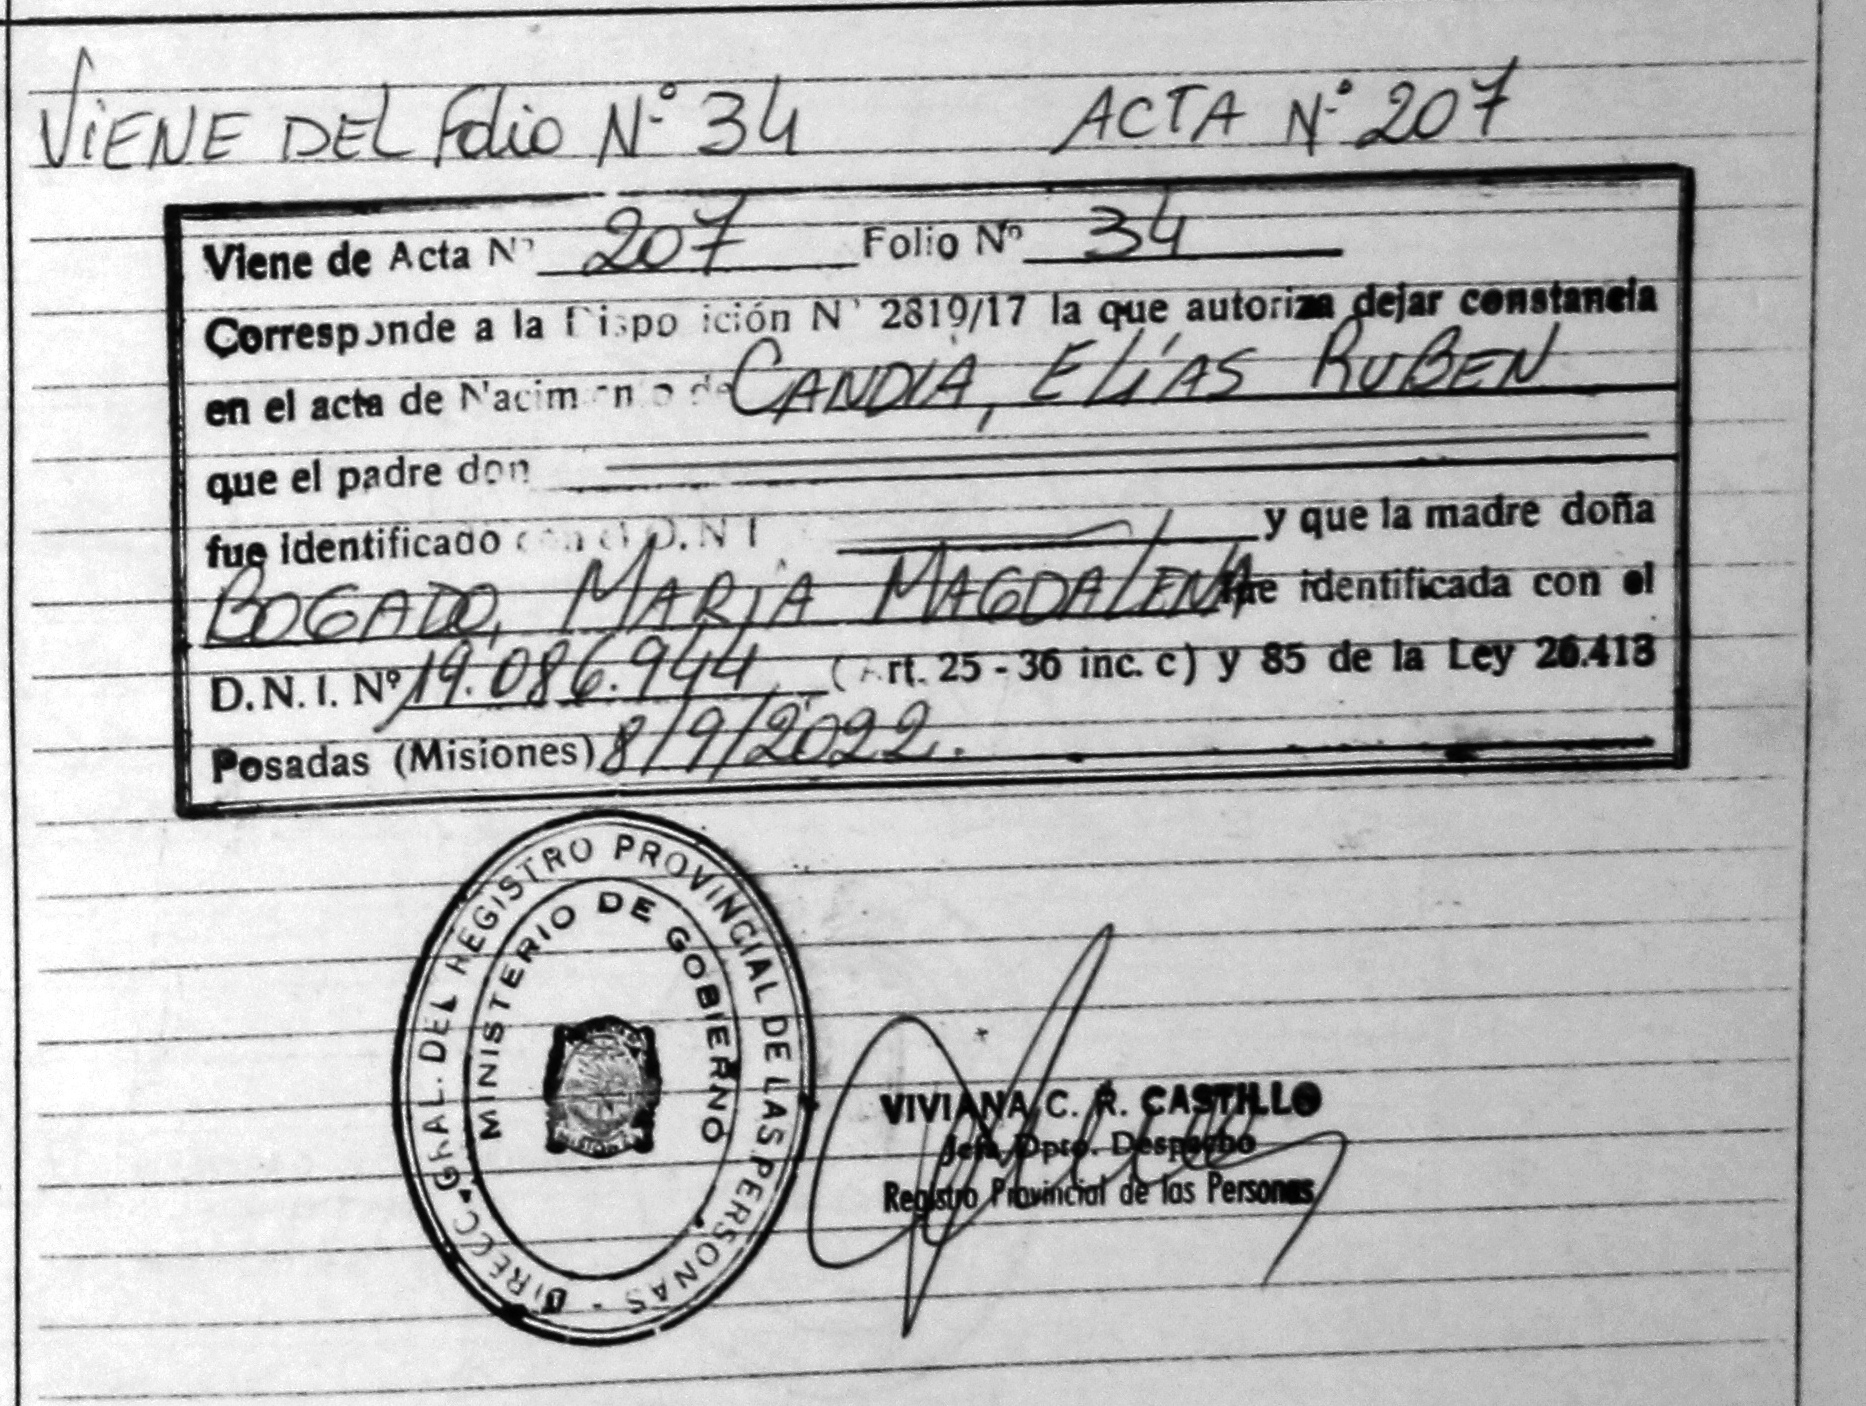 VIENE DEL Folio N° 34 ACTA N° 207
Viene de Acta N° 207 Folio Nº 34
Corresponde a la Disposición N° 2819/17 la que autoriza dejar constancia
en el acta de Nacimiento de CANDIA, ELÍAS RUBEN
que el padre don
fue identificado con el D.N.I. y que la madre doña
BOGADO, MARIA MAGDALENA fue identificada con el
D.N.I. Nº 19.086.944 (Art. 25 - 36 inc. c) y 85 de la Ley 26.413
Posadas (Misiones) 8/9/2022.
DIRECC. GRAL. DEL REGISTRO PROVINCIAL DE LAS PERSONAS -
MINISTERIO DE GOBIERNO
VIVIANA C. R. CASTILLO
Jefa Dpto. Despacho
Registro Provincial de las Personas